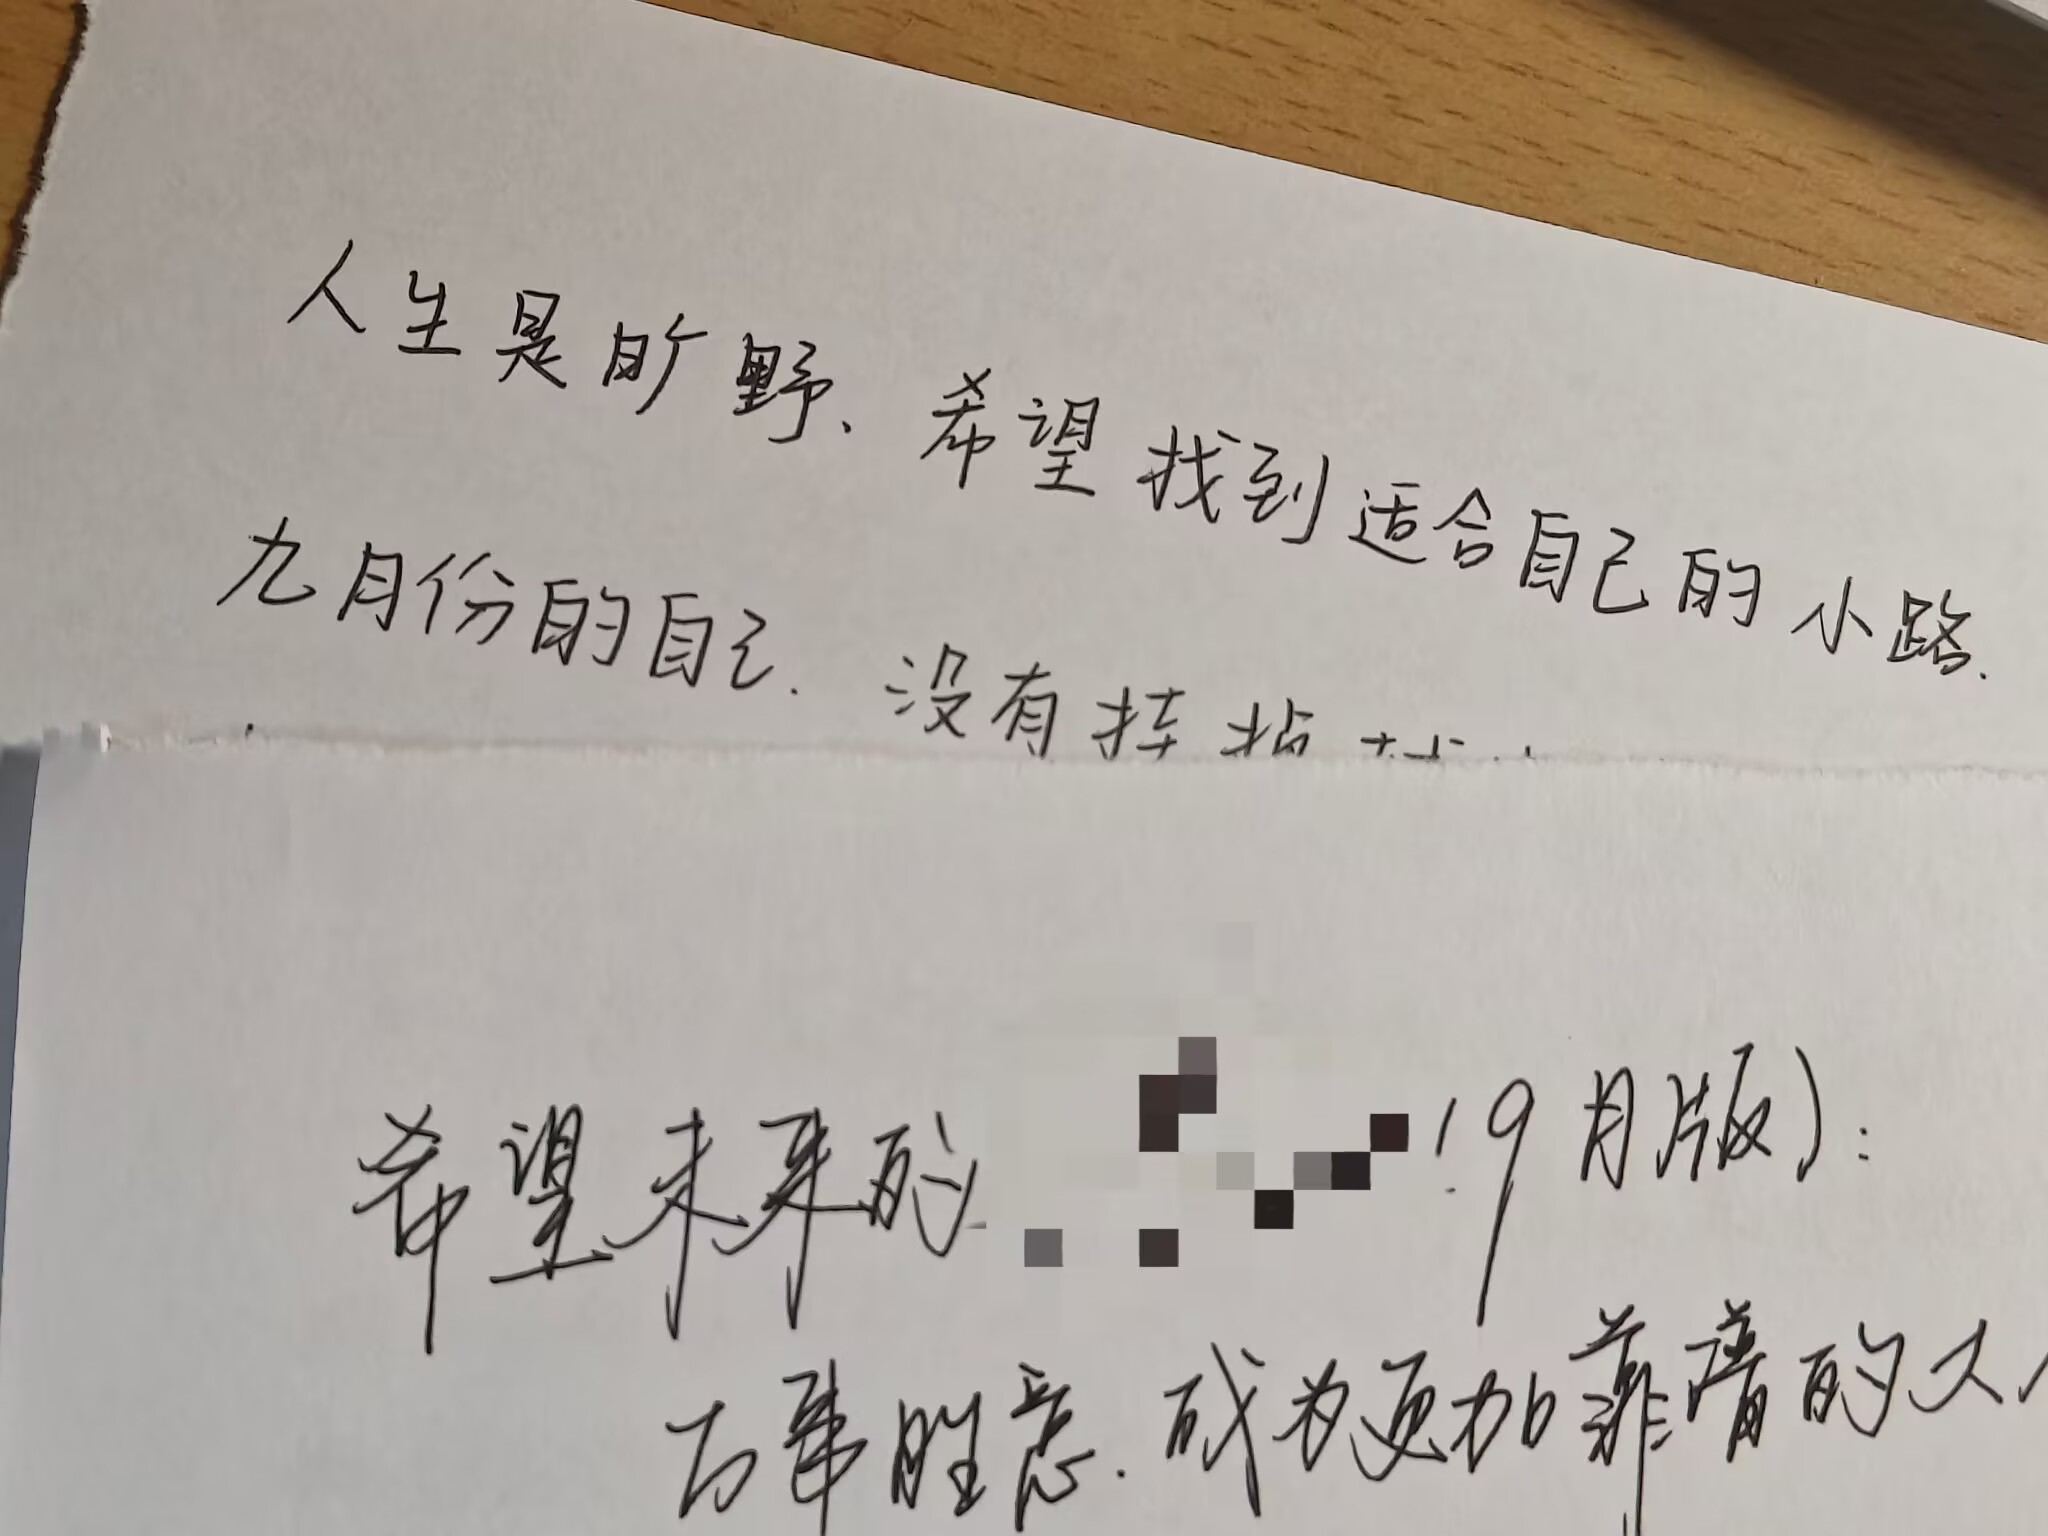 人生是旷野、希望找到适合自己的小路.
九月份的自己. 没有挂
希望未来的 (9月版):
万事胜意. 成为更加靠谱的大人